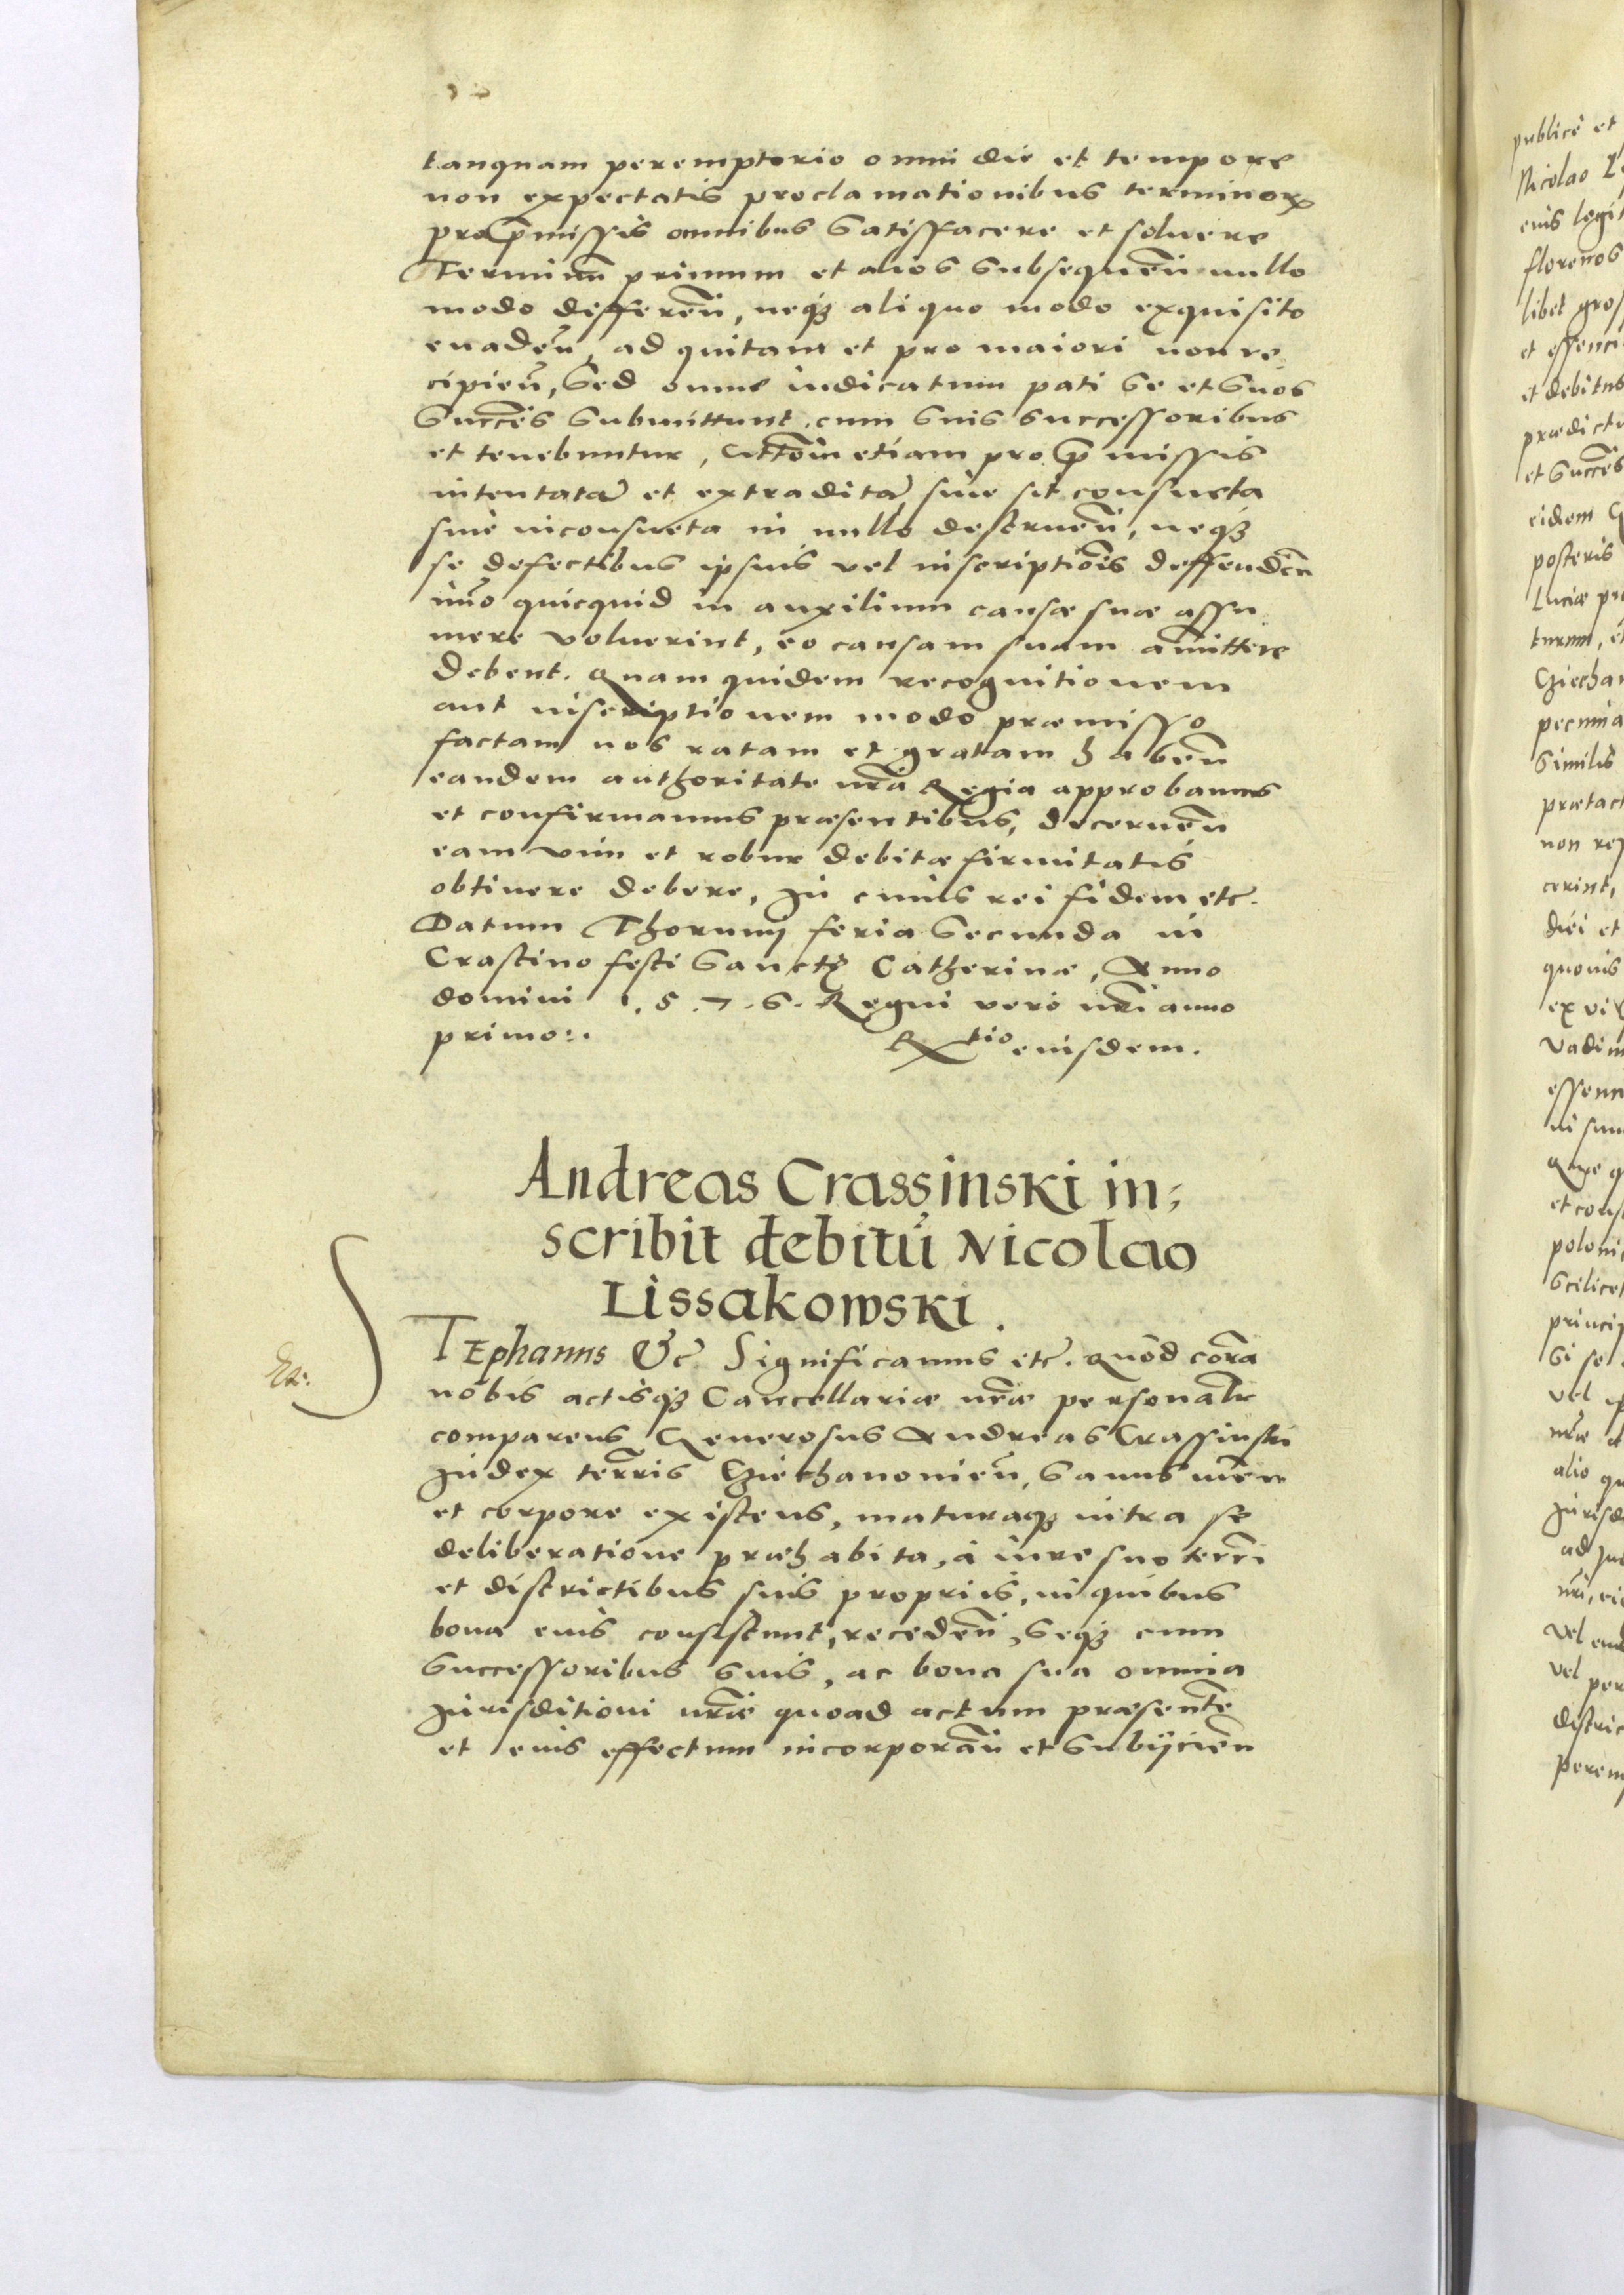 tanquam peremptorio omni die et tempore
non expectatis proclamationibus terminor
pro p̄missis omnibus satisfacere et soluere
Terminū primum et alios subsequen̄ nullo
modo differen̄, neqꝫ aliquo modo exquisito
euaden̄, ad quitam et pro maiori non re
cipien̄, sed omne iudicatum pati se et suos
Succēs submittunt, cum suis successoribus
et tenebuntur, etiam pro p̄missis
intentatā et extraditā siue sit consueta
siue inconsueta in nullo destruen̄, neqꝫ
se defectibus ipsius vel inscriptiōis deffenden̄
im̄o quicquid in auxilium causæ suæ assu
mere voluerint, eo causam suam amittere
debent. Quam quidem recognitionem
aut inscriptionem modo præmisso
factam nos ratam et gratam haben̄
eandem authoritate nrā Regia approbamus
et confirmamus præsentibus, decernen̄
eam vim et robur debitæ firmitatis
obtinere debere, In cuius rei fidem etc.
Datum Thorunij feria secunda in
Crastino festi Sanctę Catherinæ, Anno
domini 1.5.7.6. Regni vero nrī anno
primo:.
Rtio eiusdem.
Andreas Crassinski in;
scribit debitū Nicolao
Lissakowski.
STEphanus &c Significamus etc. Quod corā
nobis actisqꝫ Cancellariæ nrǣ personalr
comparens Generosus Andreas Crassinski
Iudex terrīs Cziechanouien̄, sanus men
et corpore existens, maturaqꝫ intra se
deliberatione præhabita, à iure suo terrī
et districtibus suis proprijs, in quibus
bona eius consistunt, receden̄, seqꝫ cum
successoribus suis, ac bona sua omnia
Iurisditioni nrǣ quoad actum præsentē
et eius effectum incorporan̄ et subijcien̄
publicè et
Nicolao
eius legit
florenos
libet gros
et
et debitus
prædict
et Succēs
eidem
posteris
Luciæ pr
turum, et
Cziechan
pecunia
similis
prætact
non rep
cerint,
diei et
quouis
ex vi
Vadim
Quæ q
et cons
poloni
scilicet
princip
si se
vel
nrǣ
alio qu
Iurisd
ad
vel
vel per
distric
perem